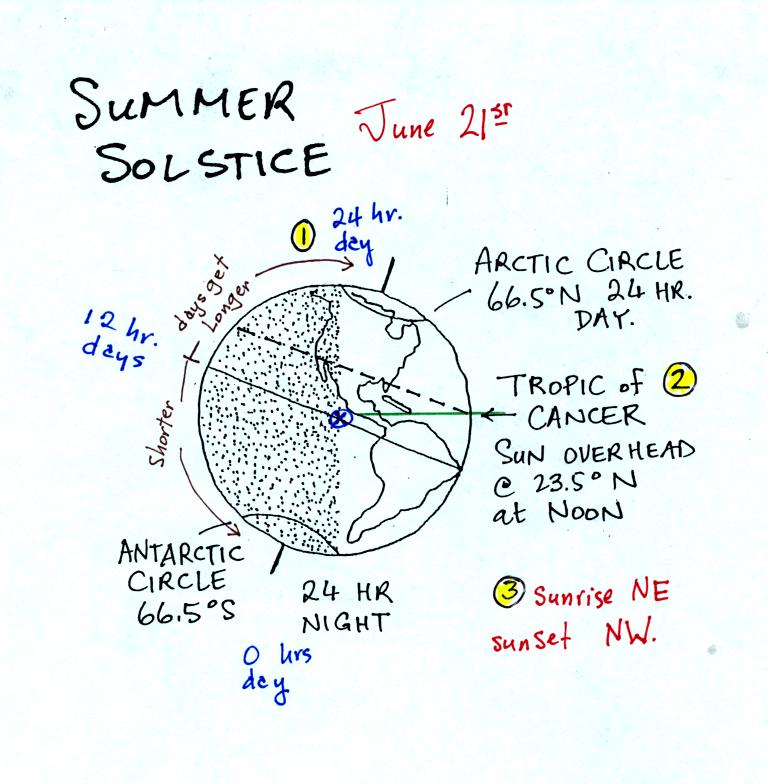 SUMMER
SOLSTICE
June 21st
1
24 hr.
day
days get
Longer
12 hr.
days
shorter
ARCTIC CIRCLE
66.5°N 24 HR.
DAY.
TROPIC of 2
CANCER
SUN OVERHEAD
@ 23.5° N
at NOON
ANTARCTIC
CIRCLE
66.5°S
24 HR
NIGHT
0 hrs
day
3 Sunrise NE
sunset NW.